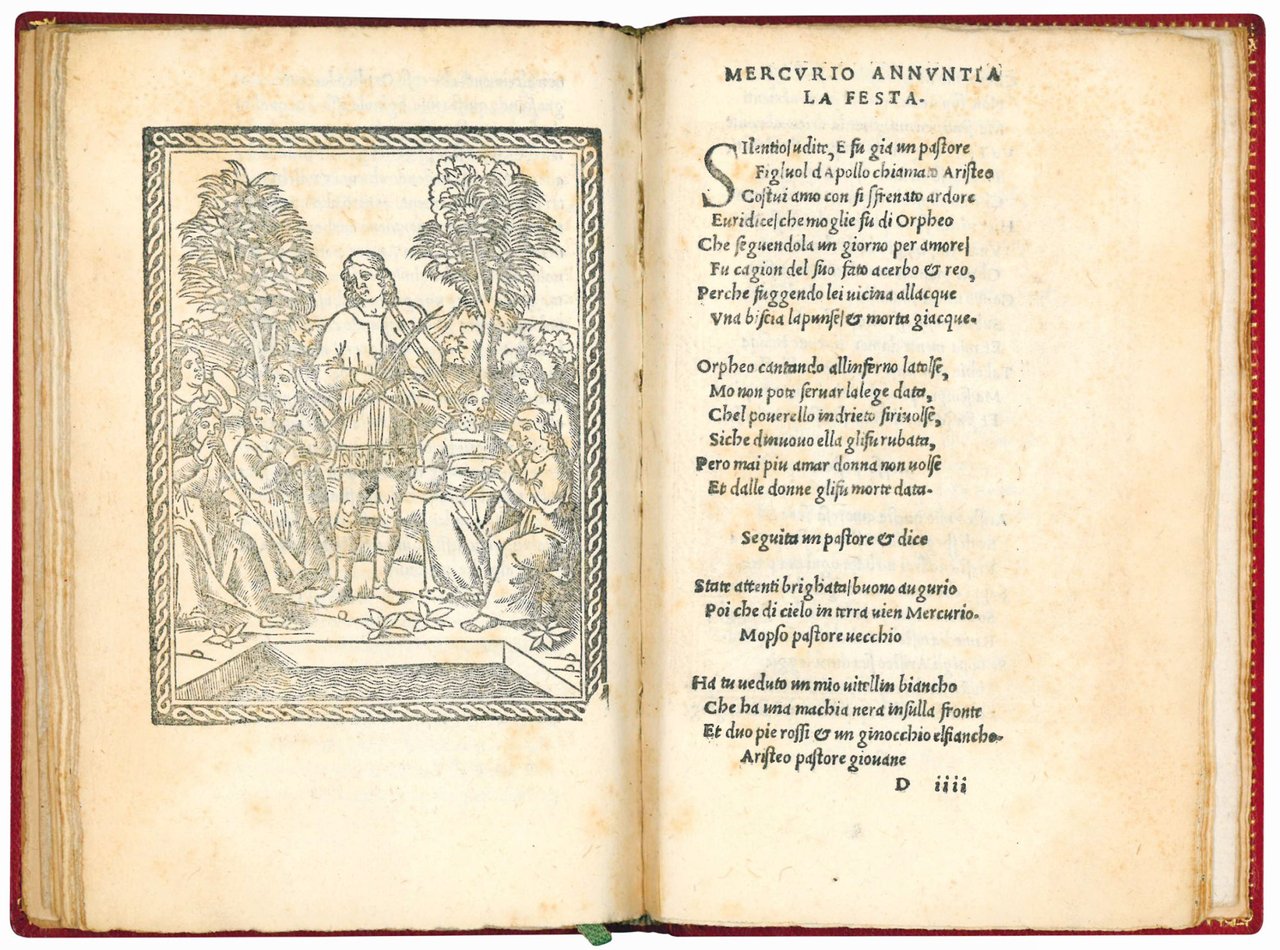 MERCVRIO ANNVNTIA
LA FESTA.
SIlentio/udite, E fu gia un paſtore
Figluol d Apollo chiamato Ariſteo
Coſtui amo con ſi ſfrenato ardore
Euridice/che moglie fu di Orpheo
Che ſeguendola un giorno per amore/
Fu cagion del ſuo fato acerbo & reo,
Perche fuggendo lei uicina allacque
Vna biſcia lapunſe/& morta giacque.
Orpheo cantando allinferno latolſe,
Mo non pote ſeruar lalege data,
Chel pouerello indrieto ſiriuolſe,
Siche dinuouo ella gliſu rubata,
Pero mai piu amar donna non uolſe
Et dalle donne gliſu morte data.
Seguita un paſtore & dice
State attenti brighata/buono augurio
Poi che di cielo in terra uien Mercurio.
Mopſo paſtore uecchio
Ha tu ueduto un mio uitellin biancho
Che ha una machia nera inſulla fronte
Et duo pie roſſi & un ginocchio elfiancho.
Ariſteo paſtore giouane
D iiii